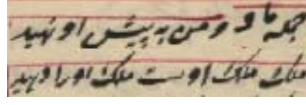 جمله ما و من به پیش او نهید
ملک ملک اوست ملک او را دهید